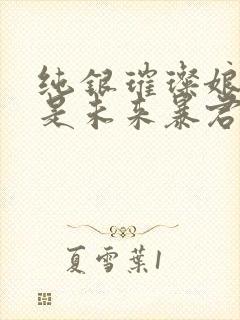 纯银璀璨娘
是未来暴君
夏雪葉1